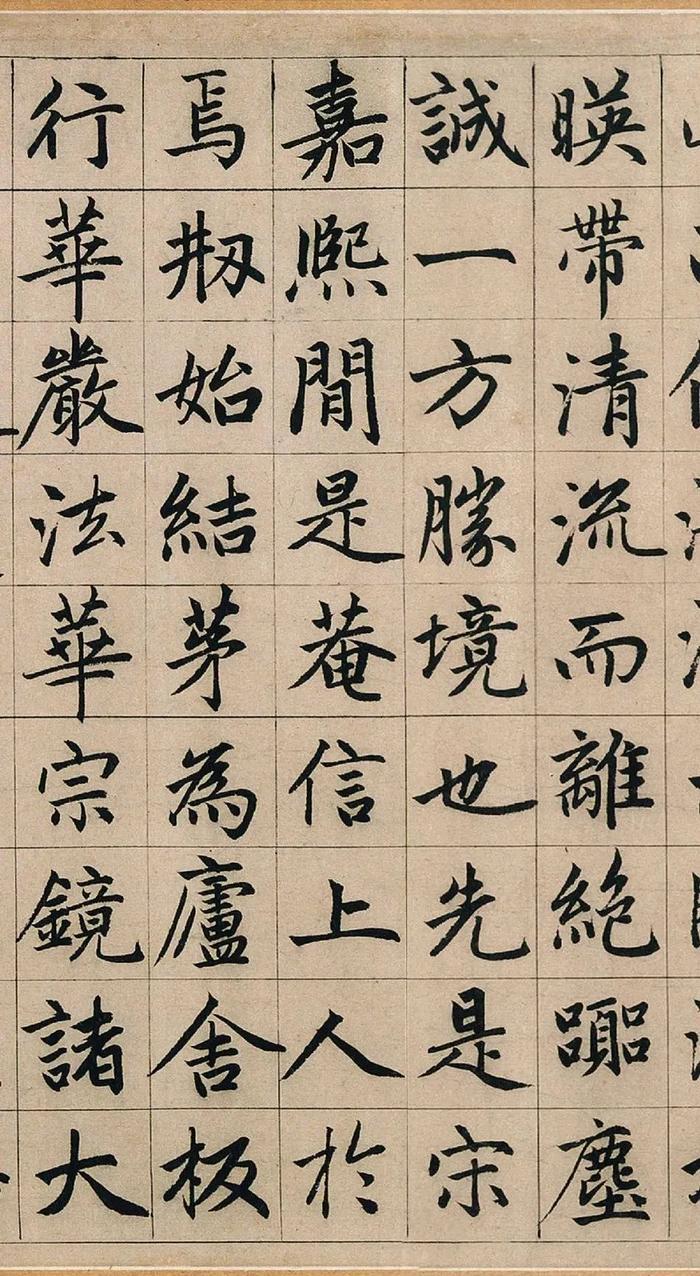 暎帶清流而離絶嚻塵
誠一方勝境也先是宋
嘉熙間是菴信上人於
焉剏始結茅為廬舍板
行華嚴法華宗鏡諸大